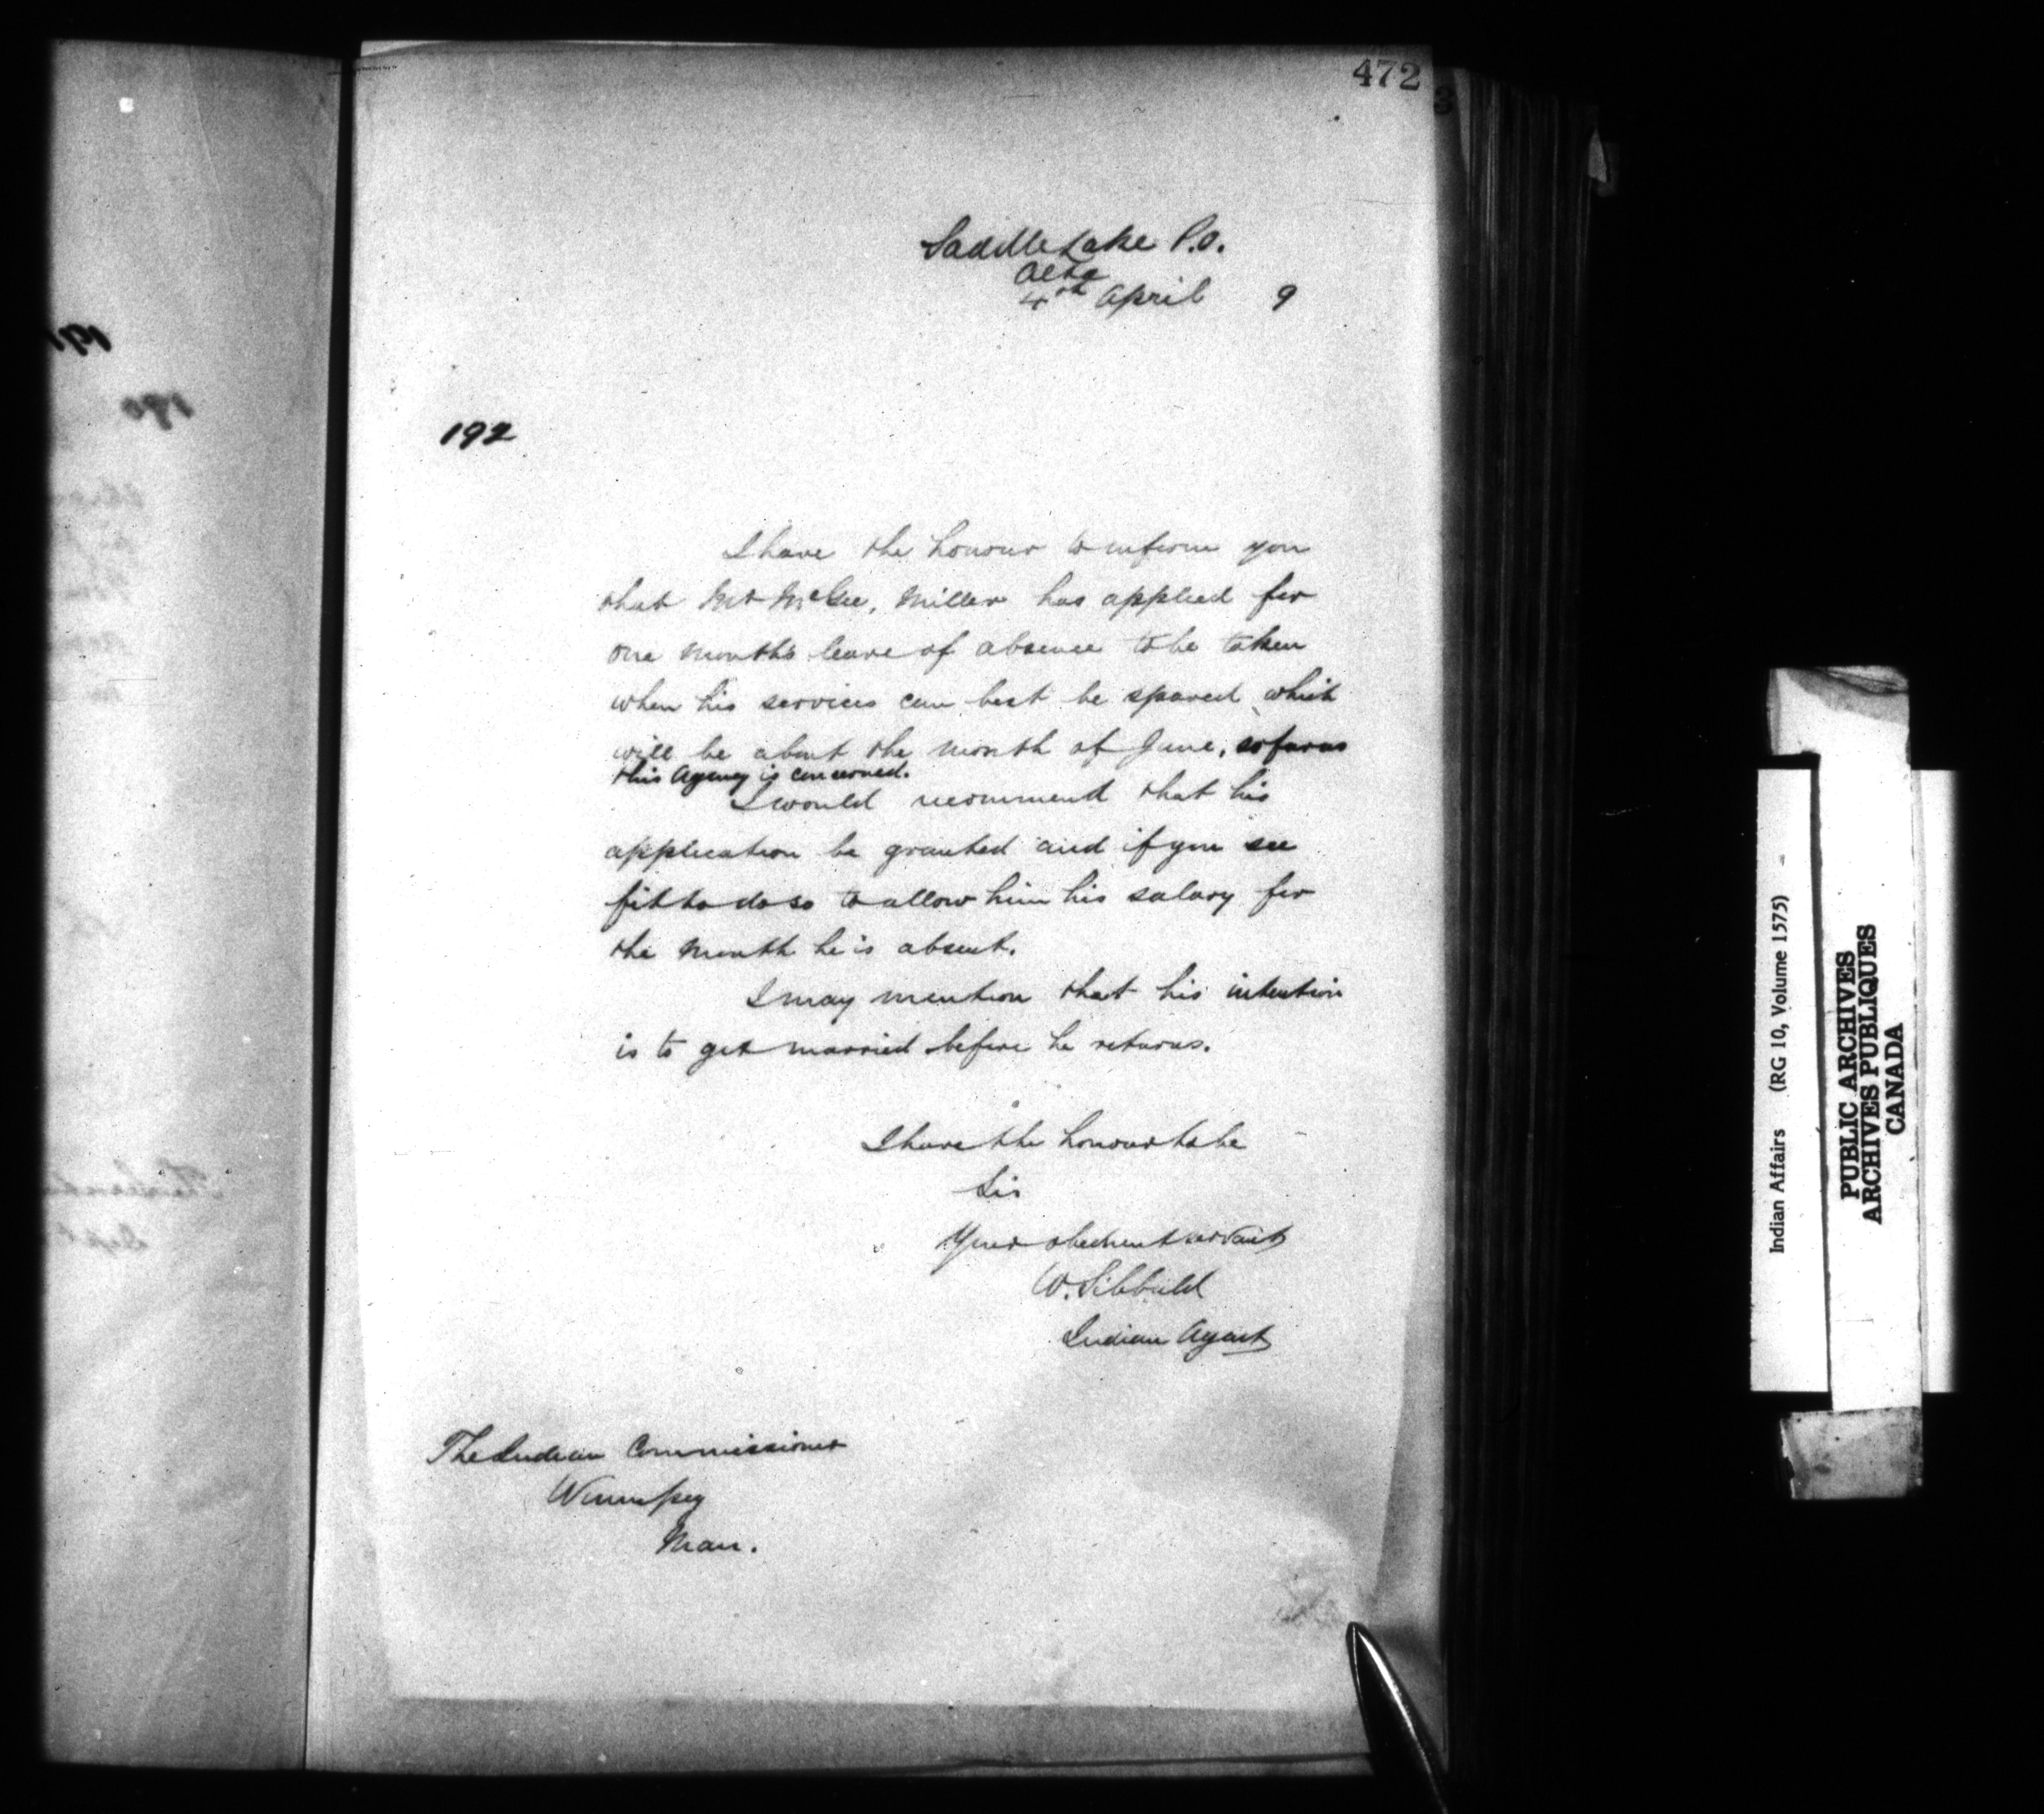 472
Saddle Lake P.O.
Alta
4th April 9
192
I have the honour to inform you
that Mr McGee, Miller has applied for
one months leave of absence to be taken
when his services can best be spared, which
will be about the month of June, so far as
this Agency is concerned.
I would recommend that his
application be granted and if you see
fit to do so to allow him his salary for
the month he is absent.
I may mention that his intention
is to get married before he returns.
I have the honour to be
Sir
Your obedient servant
W. Sibbald
Indian Agent
The Indian Commissioner
Winnipeg
Man.
191
190
Indian Affairs (RG 10, Volume 1575)
PUBLIC ARCHIVES
ARCHIVES PUBLIQUES
CANADA